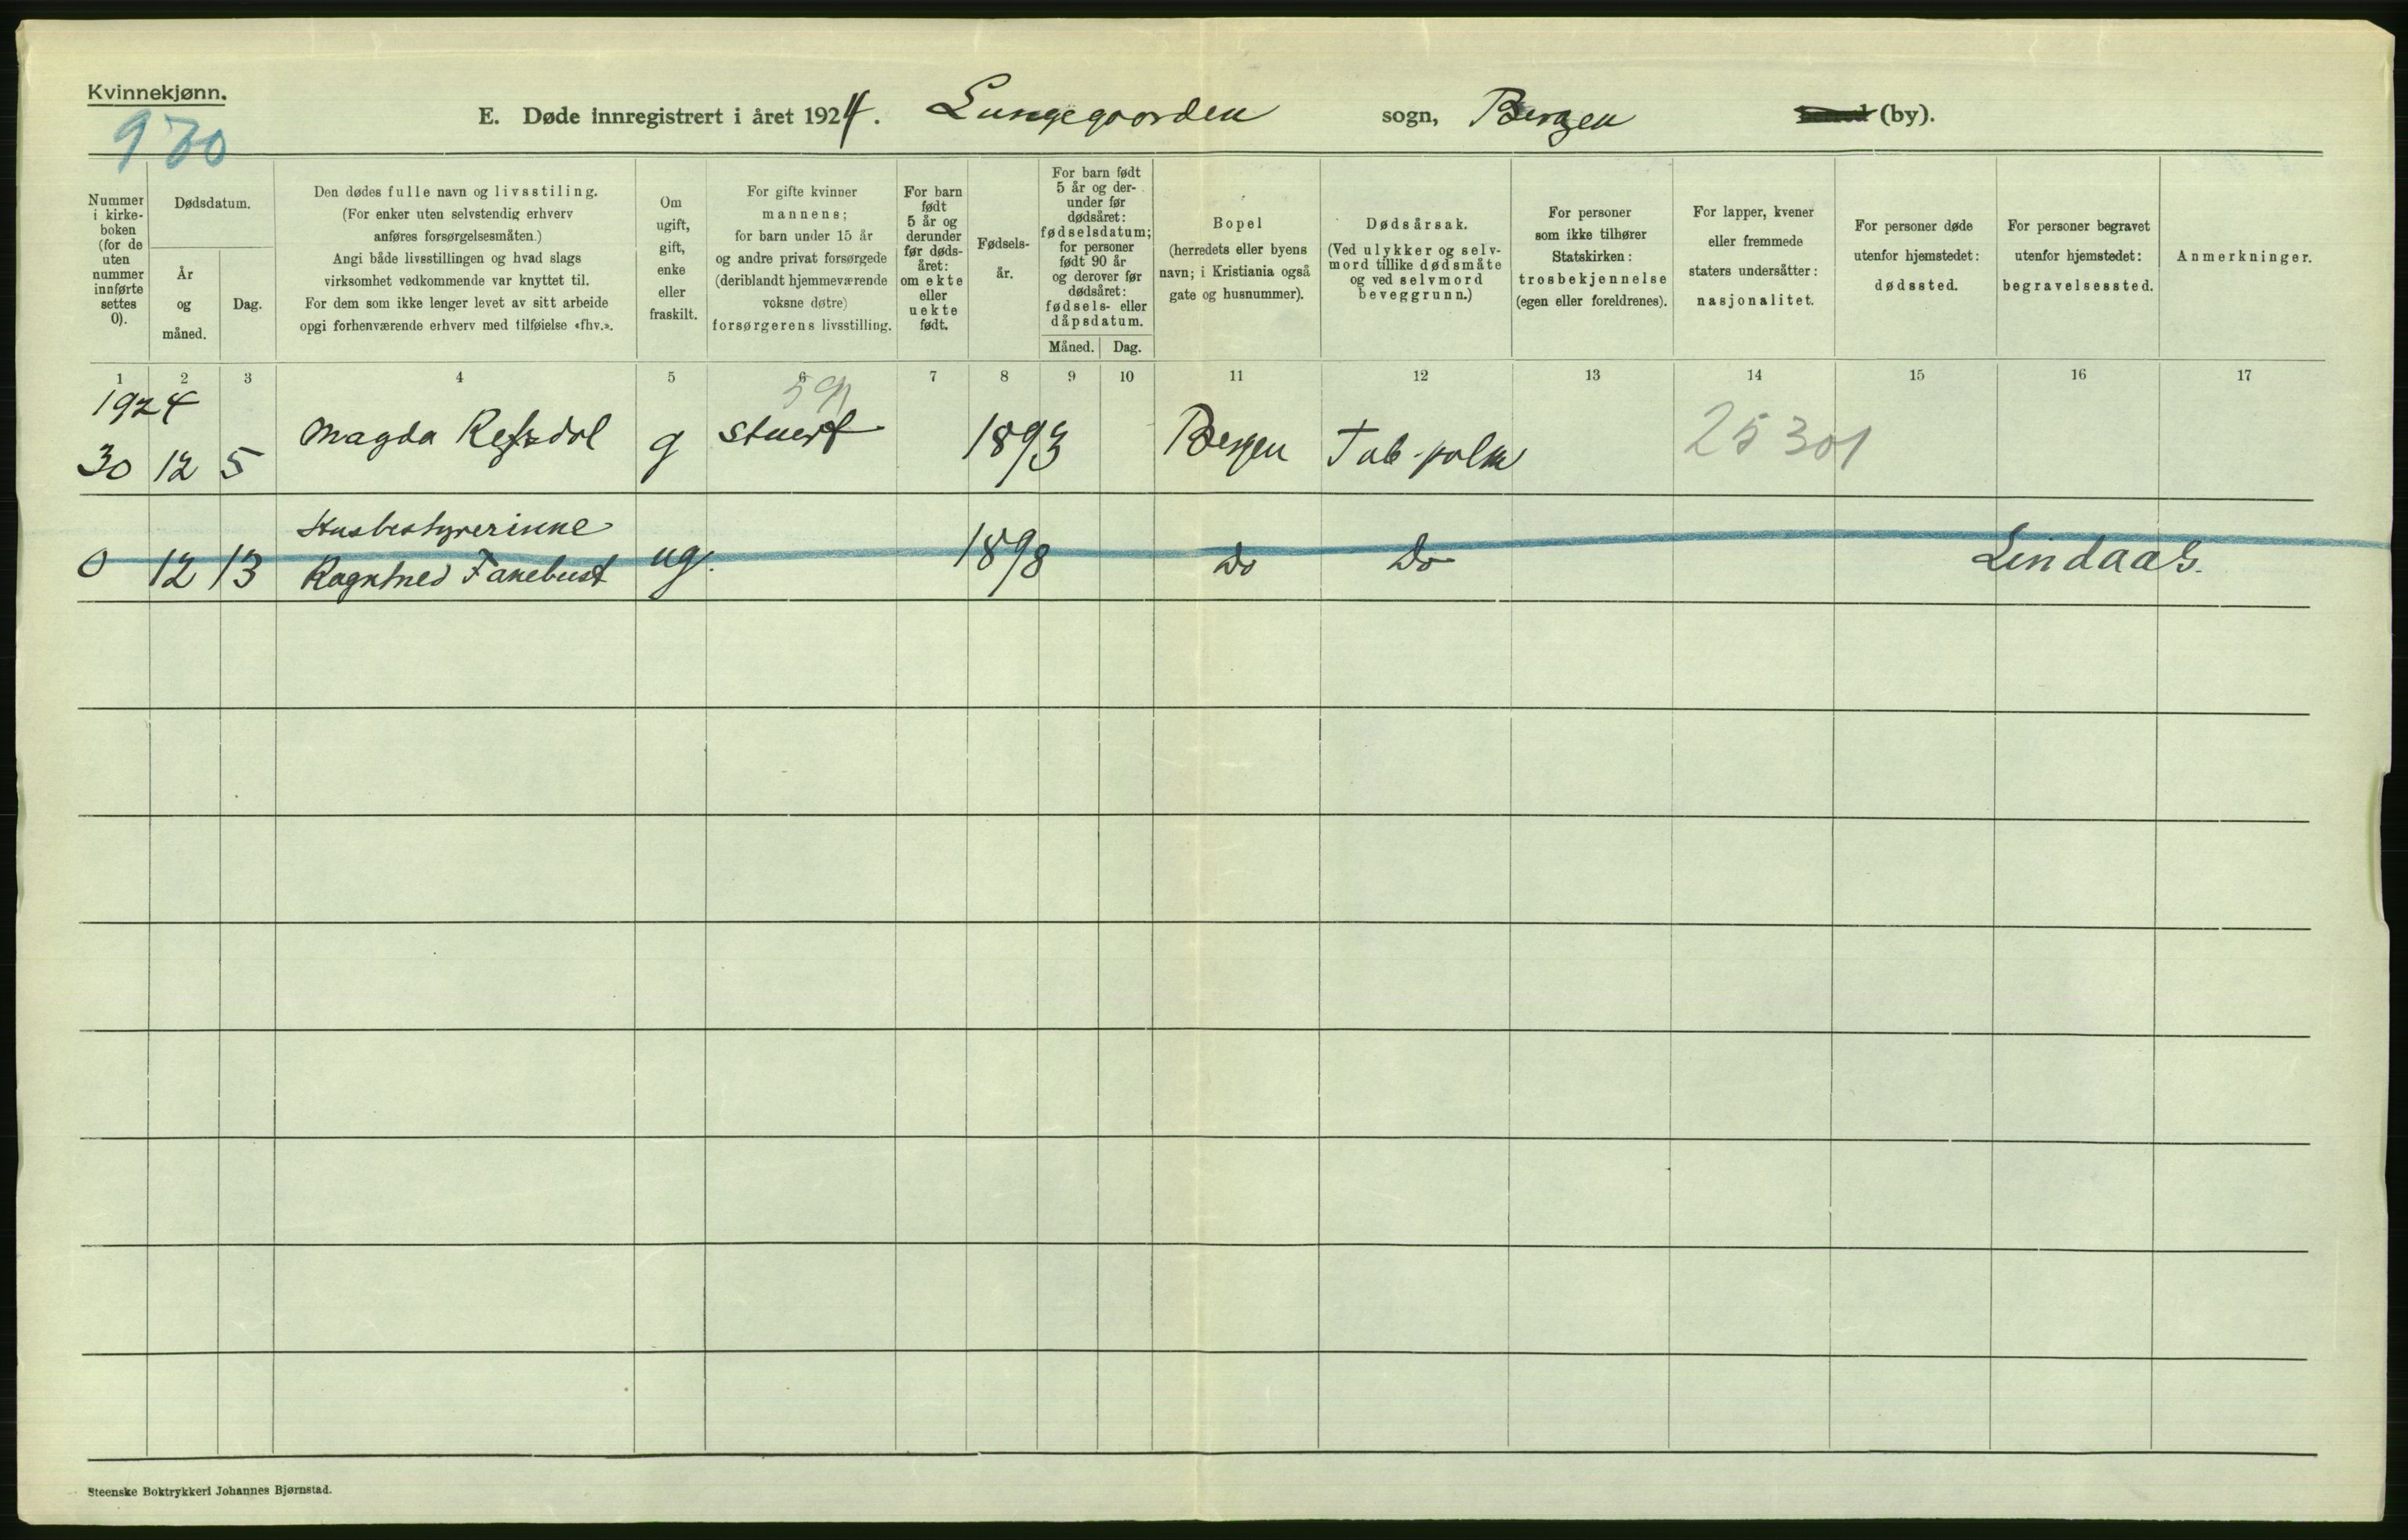 Kvinnekjønn.
930
E. Døde innregistrert i året 1924. Lungegaarden sogn, Bergen (by).
Nummer i kirke- boken (for de uten nummer innførte settes 0).
Dødsdatum.
År og måned.
Dag.
Den dødes fulle navn og livsstiling.
(For enker uten selvstendig erhverv
anføres forsørgelsesmåten.)
Angi både livsstillingen og hvad slags
virksomhet vedkommende var knyttet til.
For dem som ikke lenger levet av sitt arbeide
opgi forhenværende erhverv med tilføielse «fhv.».
Om
ugift,
gift,
enke
eller
fraskilt.
For gifte kvinner
mannens;
for barn under 15 år
og andre privat forsørgede
(deriblandt hjemmeværende
voksne døtre)
forsørgerens livsstilling.
For barn
født
5 år og
derunder
før døds-
året:
om ekte
eller
uekte
født.
Fødsels-
år.
For barn født
5 år og der-
under før
dødsåret:
fødselsdatum;
for personer
født 90 år
og derover før
dødsåret:
fødsels- eller
dåpsdatum.
Måned. Dag.
Bopel
(herredets eller byens
navn; i Kristiania også
gate og husnummer).
Dødsårsak.
(Ved ulykker og selv-
mord tillike dødsmåte
og ved selvmord
beveggrunn.)
For personer
som ikke tilhører
Statskirken:
trosbekjennelse
(egen eller foreldrenes).
For lapper, kvener
eller fremmede
staters undersåtter:
nasjonalitet.
For personer døde
utenfor hjemstedet:
dødssted.
For personer begravet
utenfor hjemstedet:
begravelsessted.
Anmerkninger.
1 2 3 4 5 6 7 8 9 10 11 12 13 14 15 16 17
1924
30 12 5 Magda Refsdal g stuert 1893 Bergen Tub. pulm 25301
Husbestyrerinne
0 12 13 Ragnhed Fanebust ug. 1898 Do Do Lindaas.
Steenske Boktrykkeri Johannes Bjørnstad.